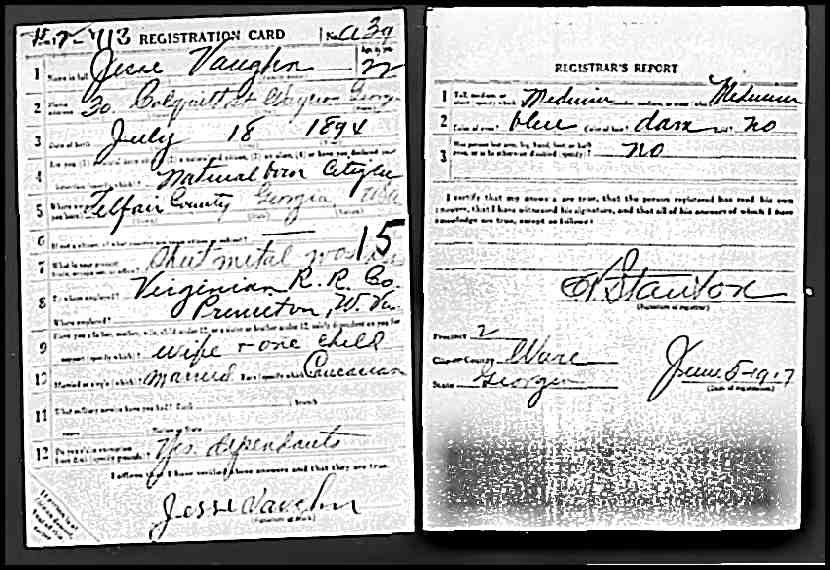 REGISTRATION CARD No. 
1 Name in full Jesse Vaughn Age, in yrs. 22
2 Home address 30 Colquitt St Waycross Georg
3 Date of birth July 18 1894
4 Are you (1) a natural born citizen, (2) a naturalized citizen, (3) an alien, (4) or have you declared your intention (specify which)? natural born citizen
5 Where were you born? Telfair County Georgia USA
6 If not a citizen, of what country are you a citizen or subject?
15
7 What is your present trade, occupation, or office? Sheet metal
8 By whom employed? Virginian R. R. Co.
Where employed? Princeton, W. Va.
9 Have you a father, mother, wife, child under 12, or a sister or brother under 12, solely dependent on you for support (specify which)? wife + one child
10 Married or single (which)? married Race (specify which)? Caucasian
11 What military service have you had? Rank branch
years Nation or State
12 Do you claim exemption from draft (specify grounds)? Yes. dependants
I affirm that I have verified above answers and that they are true.
Jesse Vaughn
(Signature or mark)
REGISTRAR'S REPORT
1 Tall, medium, or short (specify which)? Medium Slender, medium, or stout (which)? Medium
2 Color of eyes? blue Color of hair? dark Bald? no
3 Has person lost arm, leg, hand, foot, or both eyes, or is he otherwise disabled (specify)? no
I certify that my answers are true, that the person registered has read his own
answers, that I have witnessed his signature, and that all of his answers of which I have
knowledge are true, except as follows:
Stanton
(Signature of registrar)
Precinct 2
City or County Ware
State Georgia
June 5-1917
(Date of registration)